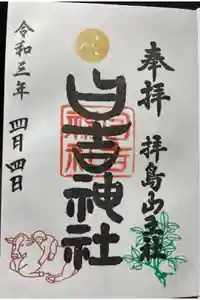 奉拝
拝島山王社
日吉神社
令和三年
四月四日